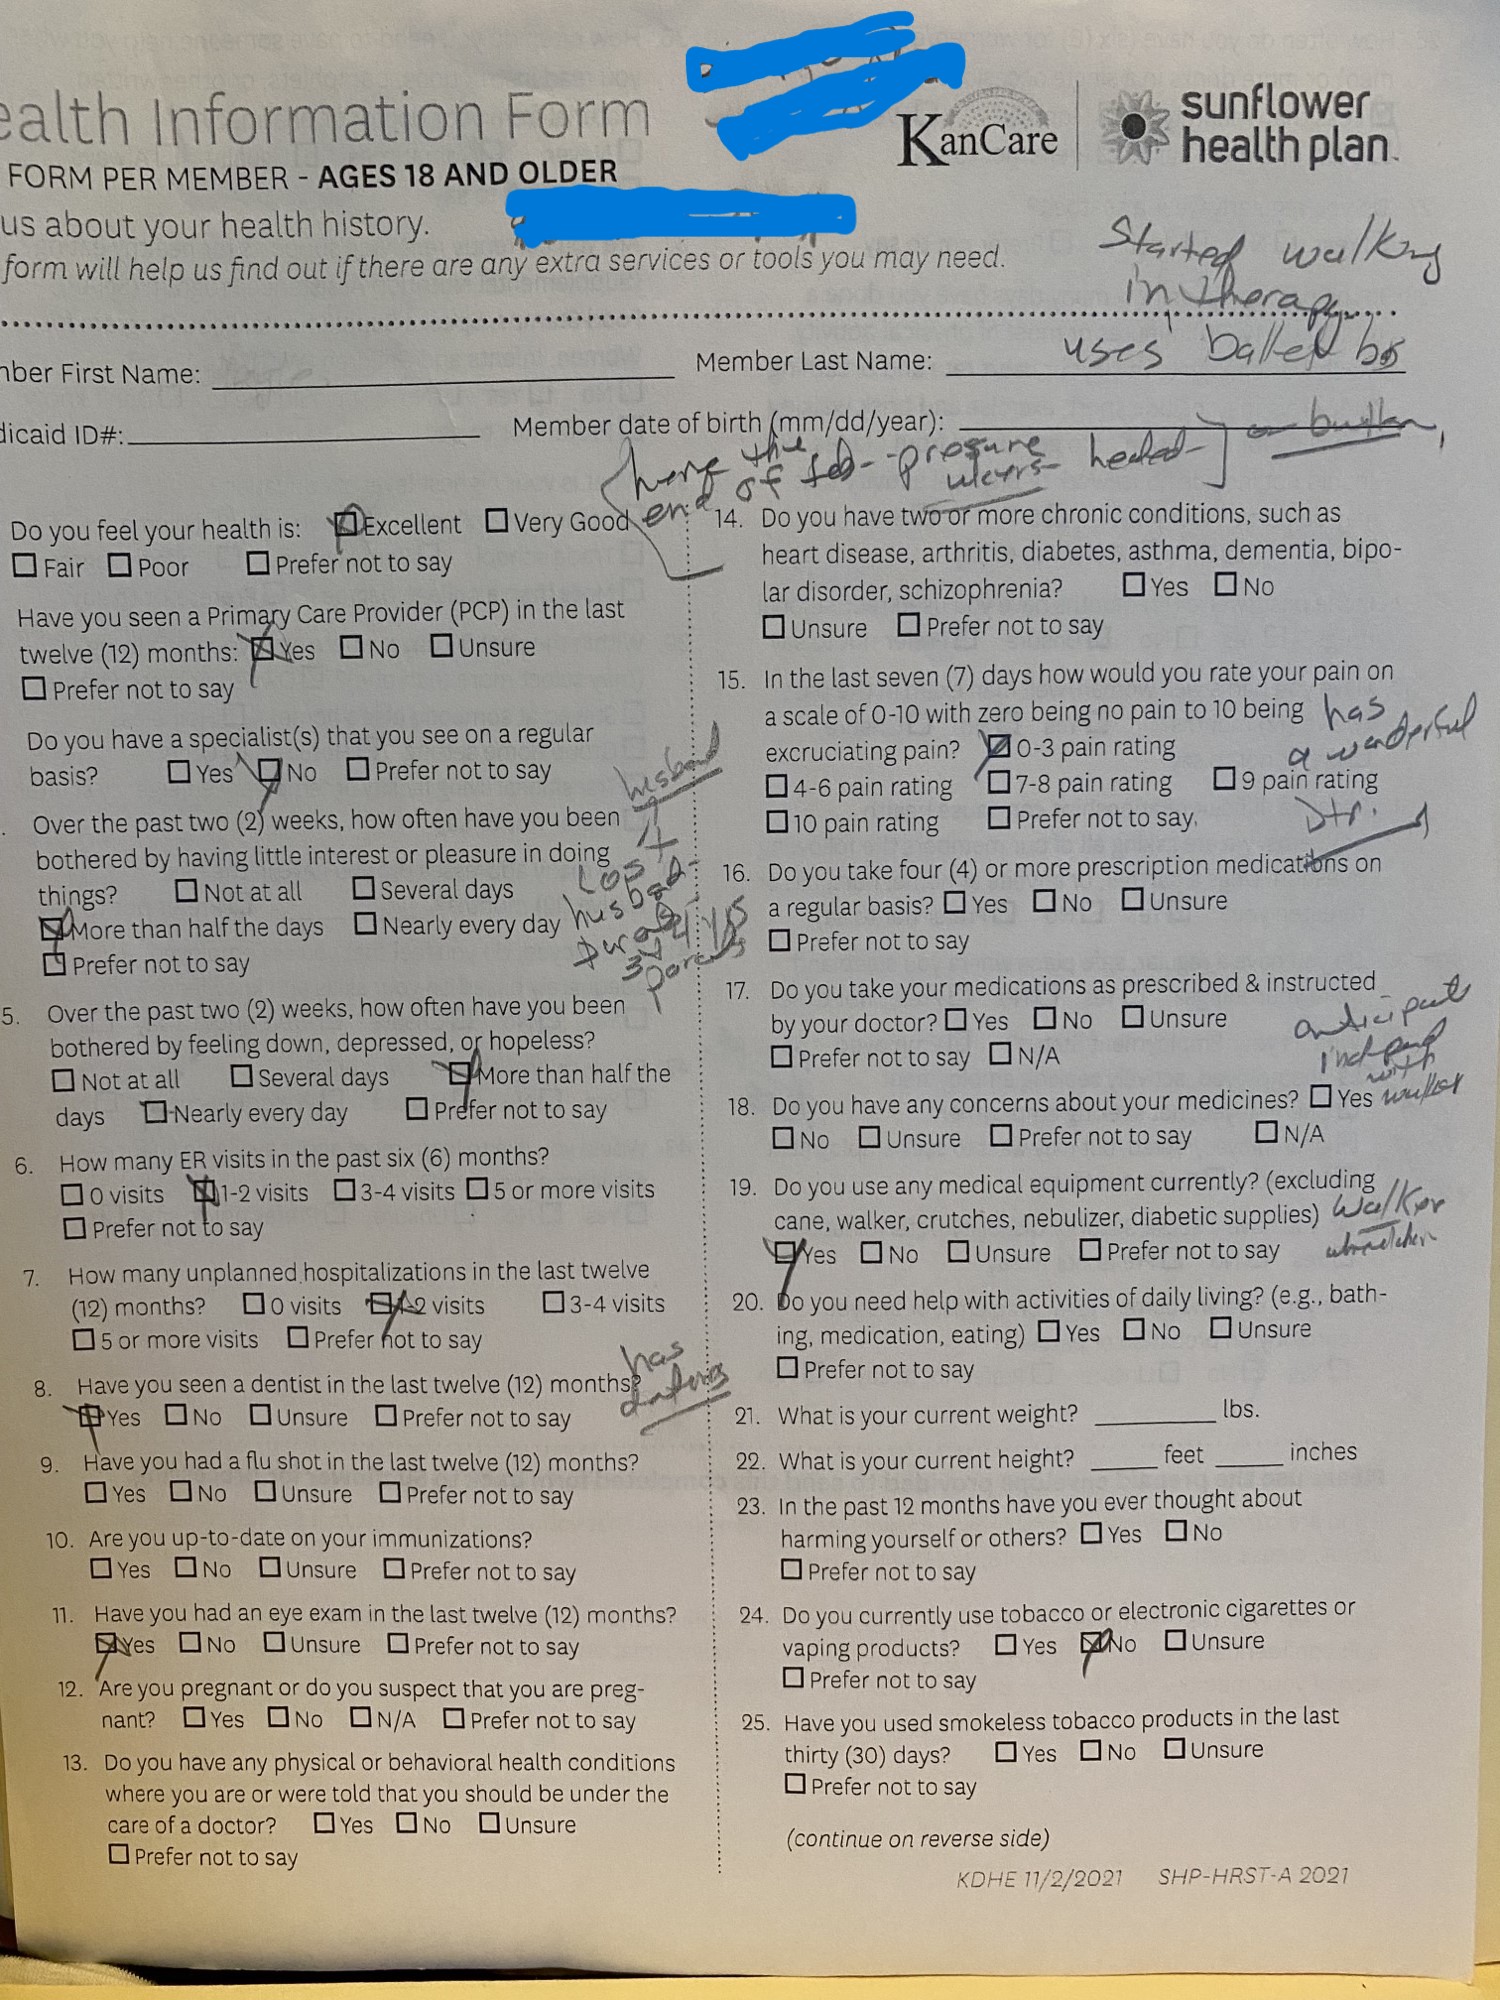 ealth Information Form
KanCare
sunflower
health plan.
FORM PER MEMBER - AGES 18 AND OLDER
us about your health history.
form will help us find out if there are any extra services or tools you may need.
Started walking
in therapy
mber First Name:
Member Last Name:
uses
dicaid ID#:
Member date of birth (mm/dd/year):
here the
end of feb - pressure
ulcers - healed
Do you feel your health is: ☒ Excellent ☐ Very Good
☐ Fair ☐ Poor ☐ Prefer not to say
Have you seen a Primary Care Provider (PCP) in the last
twelve (12) months: ☒ Yes ☐ No ☐ Unsure
☐ Prefer not to say
Do you have a specialist(s) that you see on a regular
basis? ☐ Yes ☒ No ☐ Prefer not to say
husband
. Over the past two (2) weeks, how often have you been
bothered by having little interest or pleasure in doing
things? ☐ Not at all ☐ Several days
☒ More than half the days ☐ Nearly every day
☐ Prefer not to say
Lost
husband
3 4 yrs
5. Over the past two (2) weeks, how often have you been
bothered by feeling down, depressed, or hopeless?
☐ Not at all ☐ Several days ☒ More than half the
days ☐ Nearly every day ☐ Prefer not to say
6. How many ER visits in the past six (6) months?
☐ 0 visits ☒ 1-2 visits ☐ 3-4 visits ☐ 5 or more visits
☐ Prefer not to say
7. How many unplanned hospitalizations in the last twelve
(12) months? ☐ 0 visits ☒ 1-2 visits ☐ 3-4 visits
☐ 5 or more visits ☐ Prefer not to say
8. Have you seen a dentist in the last twelve (12) months?
☒ Yes ☐ No ☐ Unsure ☐ Prefer not to say
has
9. Have you had a flu shot in the last twelve (12) months?
☐ Yes ☐ No ☐ Unsure ☐ Prefer not to say
10. Are you up-to-date on your immunizations?
☐ Yes ☐ No ☐ Unsure ☐ Prefer not to say
11. Have you had an eye exam in the last twelve (12) months?
☒ Yes ☐ No ☐ Unsure ☐ Prefer not to say
12. Are you pregnant or do you suspect that you are preg-
nant? ☐ Yes ☐ No ☐ N/A ☐ Prefer not to say
13. Do you have any physical or behavioral health conditions
where you are or were told that you should be under the
care of a doctor? ☐ Yes ☐ No ☐ Unsure
☐ Prefer not to say
14. Do you have two or more chronic conditions, such as
heart disease, arthritis, diabetes, asthma, dementia, bipo-
lar disorder, schizophrenia? ☐ Yes ☐ No
☐ Unsure ☐ Prefer not to say
15. In the last seven (7) days how would you rate your pain on
a scale of 0-10 with zero being no pain to 10 being
excruciating pain? ☒ 0-3 pain rating
☐ 4-6 pain rating ☐ 7-8 pain rating ☐ 9 pain rating
☐ 10 pain rating ☐ Prefer not to say.
has
a wonderful
Dtr.
16. Do you take four (4) or more prescription medications on
a regular basis? ☐ Yes ☐ No ☐ Unsure
☐ Prefer not to say
17. Do you take your medications as prescribed & instructed
by your doctor? ☐ Yes ☐ No ☐ Unsure
☐ Prefer not to say ☐ N/A
with
walker
18. Do you have any concerns about your medicines? ☐ Yes
☐ No ☐ Unsure ☐ Prefer not to say ☐ N/A
19. Do you use any medical equipment currently? (excluding
cane, walker, crutches, nebulizer, diabetic supplies)
☒ Yes ☐ No ☐ Unsure ☐ Prefer not to say
Walker
20. Do you need help with activities of daily living? (e.g., bath-
ing, medication, eating) ☐ Yes ☐ No ☐ Unsure
☐ Prefer not to say
21. What is your current weight? ________ lbs.
22. What is your current height? ____ feet ____ inches
23. In the past 12 months have you ever thought about
harming yourself or others? ☐ Yes ☐ No
☐ Prefer not to say
24. Do you currently use tobacco or electronic cigarettes or
vaping products? ☐ Yes ☒ No ☐ Unsure
☐ Prefer not to say
25. Have you used smokeless tobacco products in the last
thirty (30) days? ☐ Yes ☐ No ☐ Unsure
☐ Prefer not to say
(continue on reverse side)
KDHE 11/2/2021 SHP-HRST-A 2021